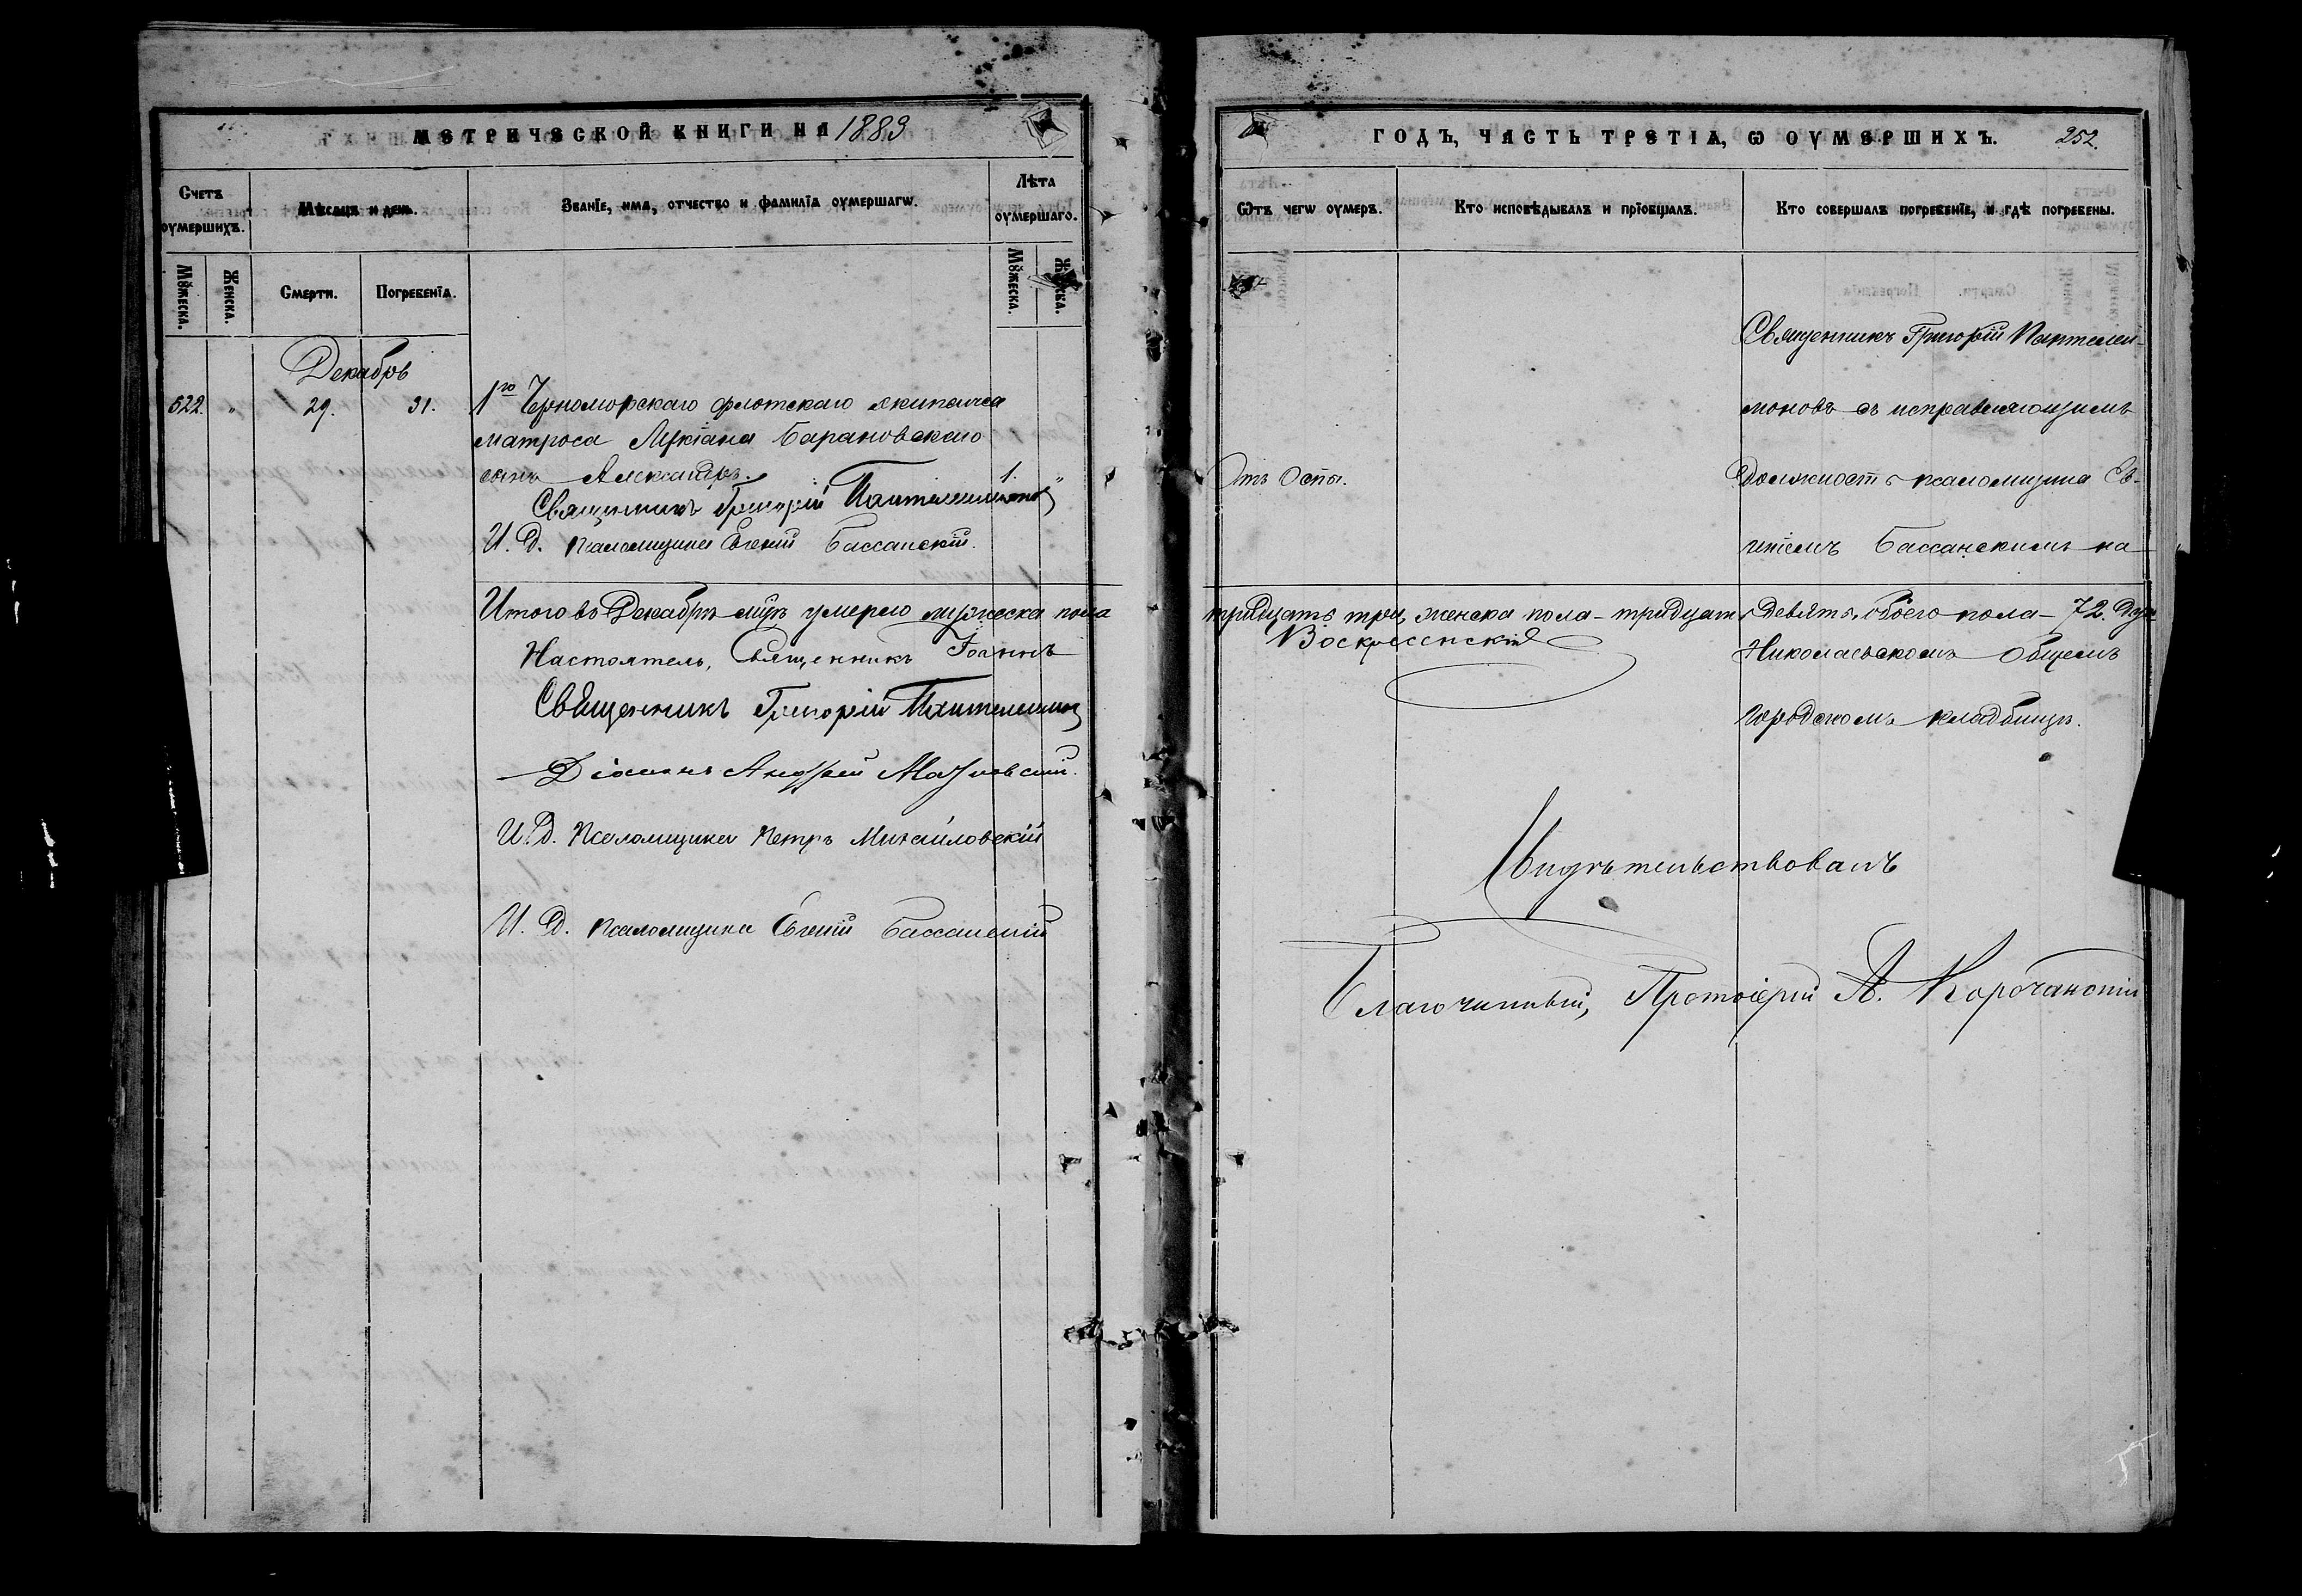 МЕТРИЧЕСКОЙ КНИГИ НА 1889
Счетъ оумершихъ.
Мѣсяцъ и день.
Званїе, имѧ, отчество и фамилїѧ оумершагѡ.
Лѣта оумершаго.
Мꙋжеска.
Женска.
Смерти.
Погребенїѧ.
Мꙋжеска.
Декабрь
522. " 29. 31. 1го Черноморскаго флотскаго экипажа
матроса Лукіана Барановскаго
сынъ Александръ. 1. "
Священникъ Григорій Пантелимоновъ
И. д. псаломщика Евгеній Бассанскій.
Итого въ Декабрѣ мцѣ умерло мужеска пола
Настоятель, Священникъ Іоаннъ
Священникъ Григорій Пантелимоновъ
Діаконъ Андрей
И. д. Псаломщика Петръ Михайловскій
И. д. псаломщика Евгеній Бассанскій
ГОДЪ, ЧАСТЬ ТРЕТІѦ, Ѡ ОУМЕРШИХЪ. 252.
Ѿтъ чегѡ оумеръ.
Кто исповѣдывалъ и прїобщалъ.
Кто совершалъ погребенїе, и гдѣ погребены.
Священникъ Григорій Пантелей-
моновъ съ исправляющимъ
Отъ Оспы.
должность псаломщика Ев-
геніемъ Бассанскимъ на
тридцать три, женска пола - тридцать девять, обоего пола - 72. душ
Воскресенскій
Николаевскомъ Общемъ
городскомъ кладбищѣ.
Свидѣтельствовалъ
Благочинный, Протоіерей А. Корочанскій